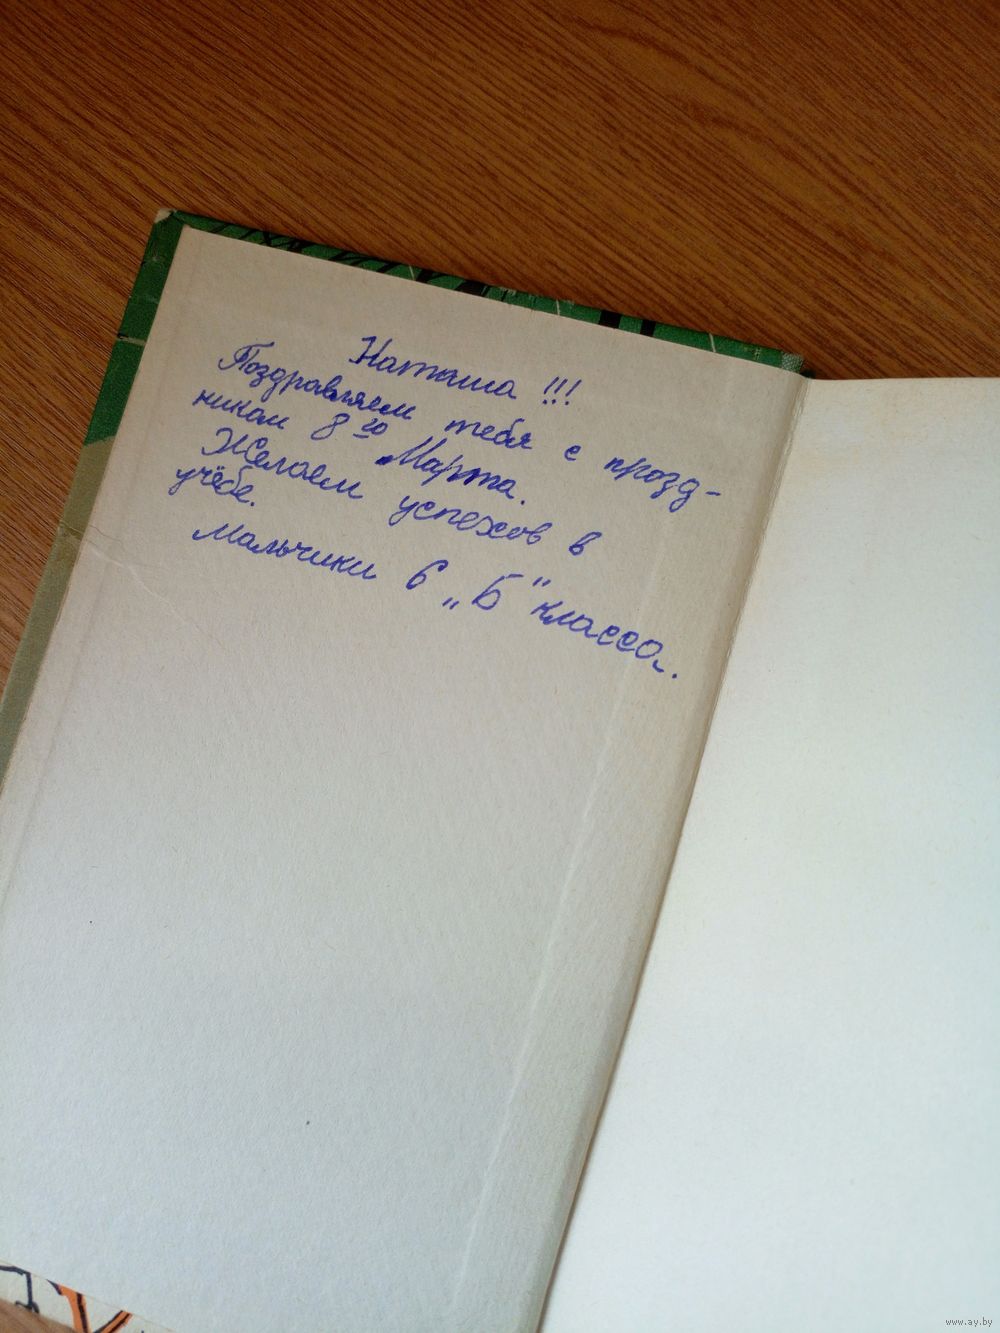 Наташа !!!
Поздравляем тебя с празд-
ником 8го Марта.
Желаем успехов в
учёбе.
Мальчики 6 „Б“ класса.
www.ay.by